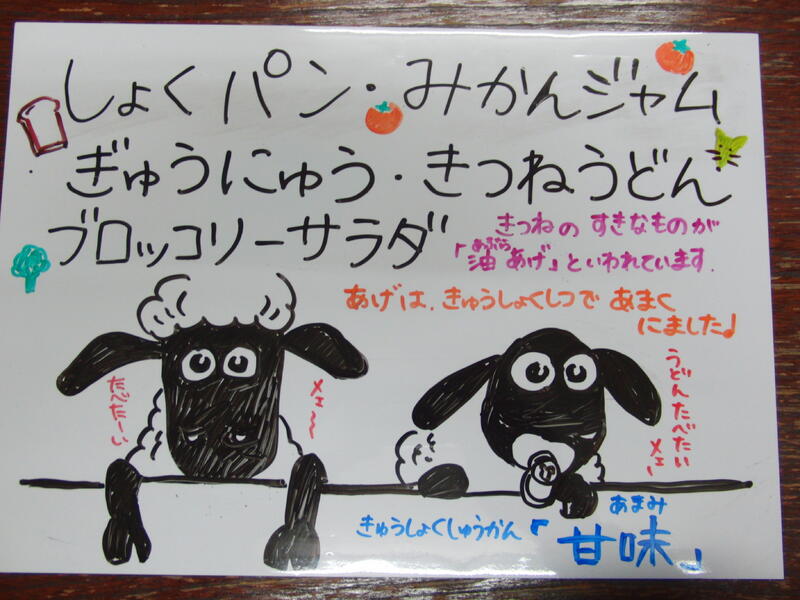 しょくパン・みかんジャム
ぎゅうにゅう・きつねうどん
ブロッコリーサラダ
きつねの すきなものが
「油あげ」といわれています.
あぶら
あげは、きゅうしょくしつで あまく
にました♩
たべたーい
メェ〜〜
うどんたべたい
メェ〜
きゅうしょくしゅうかん「甘味」
あまみ